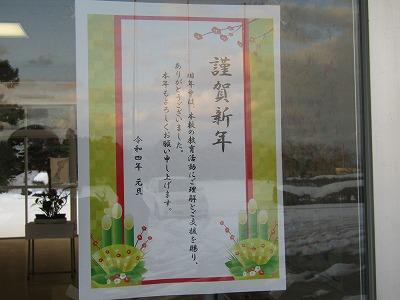 謹賀新年
旧年中は、本校の教育活動にご理解とご支援を賜り、
ありがとうございました。
本年もよろしくお願い申し上げます。
令和四年 元旦